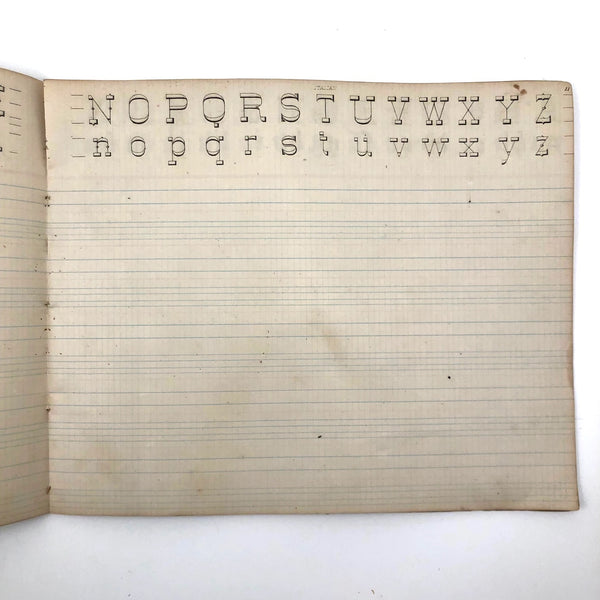 ITALIAN
N O P Q R S T U V W X Y Z
n o p q r s t u v w x y z